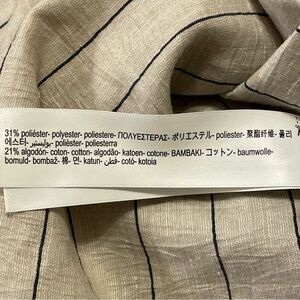 31% poliéster- polyester- poliestere- ΠΟΛΥΕΣΤΕΡΑΣ- ポリエステル- poliester- 聚酯纤维- 폴리
에스터- بوليستير- polièster- poliesterra
21% algodón- coton- cotton- algodão- katoen- cotone- BAMBAKI- コットン- baumwolle-
bomuld- bombaž- 棉- 면- katun- قطن- cotó- kotoia